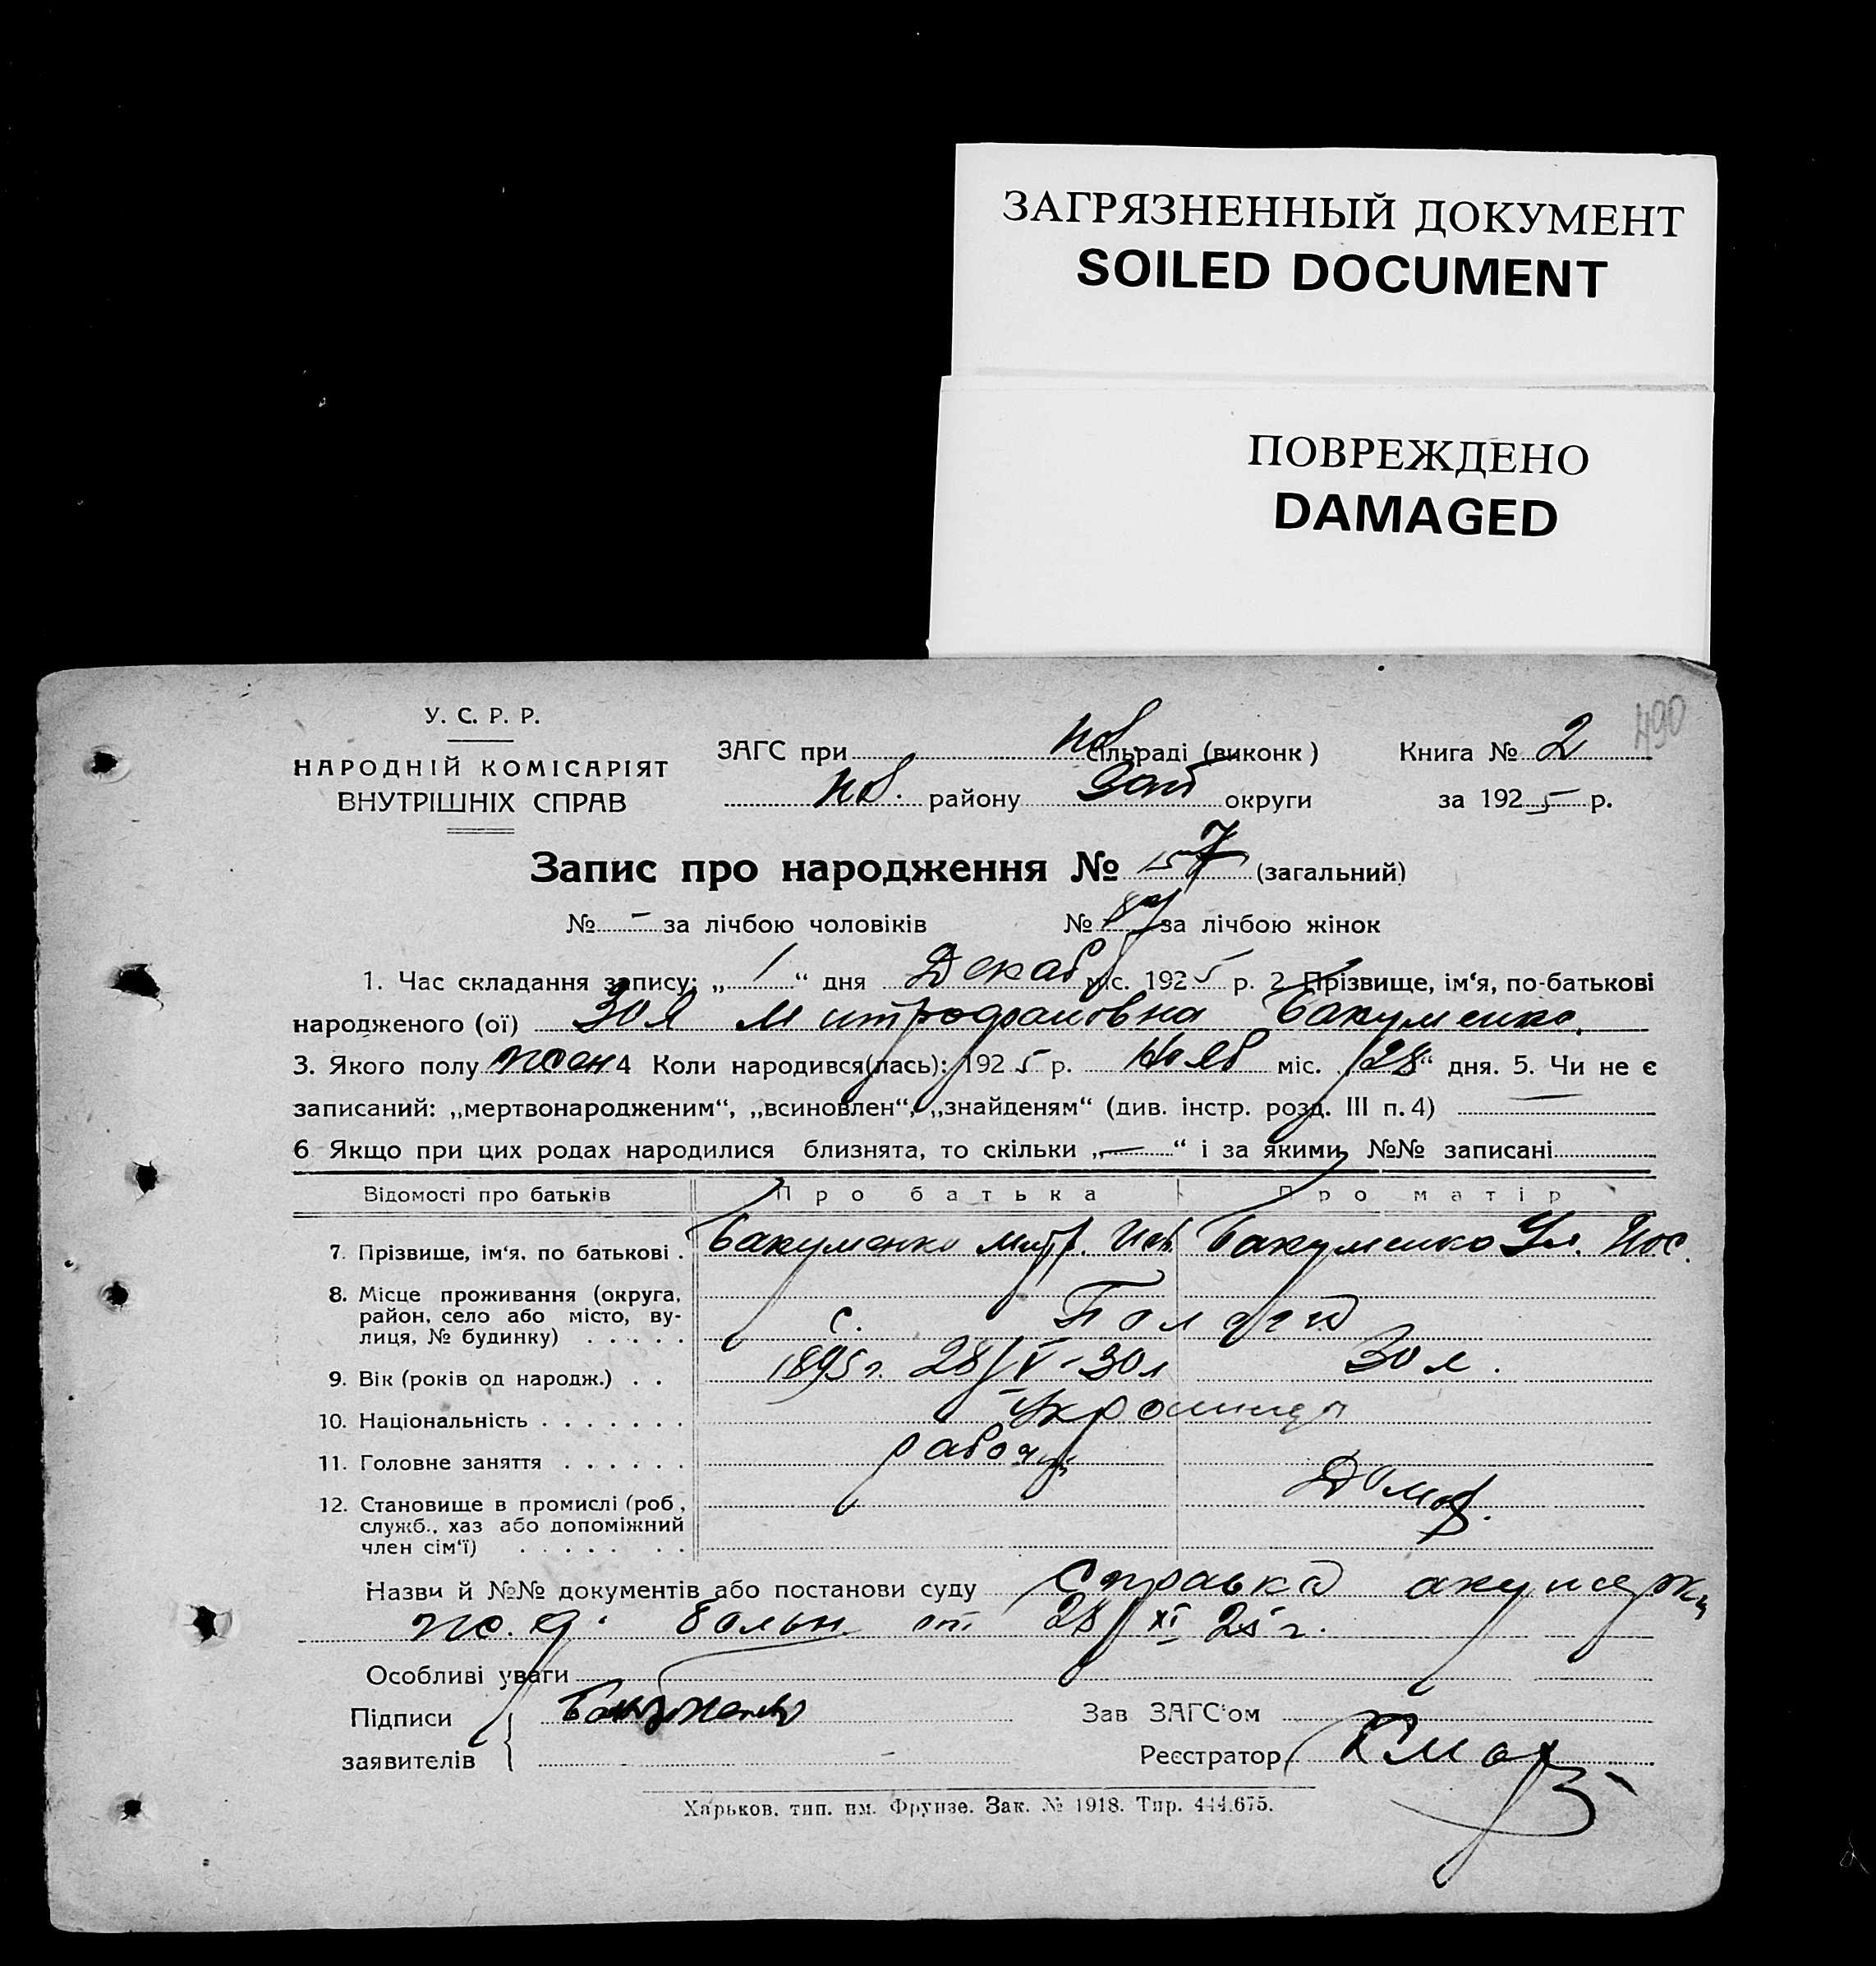 ЗАГРЯЗНЕННЫЙ ДОКУМЕНТ
SOILED DOCUMENT
ПОВРЕЖДЕНО
DAMAGED
490
У. С. Р. Р.
НАРОДНІЙ КОМІСАРІЯТ
ВНУТРІШНІХ СПРАВ
ЗАГС при сільраді (виконк) Книга № 2
району округи за 1925 р.
Запис про народження № 157 (загальний)
№ - за лічбою чоловіків № за лічбою жінок
1. Час складання запису: „1“ дня Декаб міс. 1925 р. 2 Прізвище, ім‘я, по-батькові
народженого (ої) Зоя Митрофановна Бакуменко.
3. Якого полу жен 4 Коли народився(лась): 1925 р. Нояб міс. „28“ дня. 5. Чи не є
записаний: „мертвонародженим“, „всиновлен“, „знайденям“ (див. інстр. розд. III п. 4) —
6 Якщо при цих родах народилися близнята, то скільки „—“ і за якими №№ записані
Відомості про батьків Про батька Про матір
7. Прізвище, ім‘я, по батькові . Бакуменко Митр. Ив. Бакуменко Ул. Иос.
8. Місце проживання (округа,
район, село або місто, ву-
лиця, № будинку) . . . . . с.
9. Вік (років од народж.) . . 1895 г. 28/V - 30 л 30 л.
10. Національність . . . . . . . Украинцы
11. Головне заняття . . . . . . рабочий
12. Становище в промислі (роб., Домох.
служб., хаз або допоміжний
член сім‘ї) . . . . . . .
Назви й №№ документів або постанови суду Справка акушерки
ж. д. больн. от 28/XI 25 г.
Особливі уваги
Підписи Бакуменко Зав ЗАГС‘ом
заявителів Реєстратор
Харьков. тип. им. Фрунзе. Зак. № 1918. Тир. 444.675.